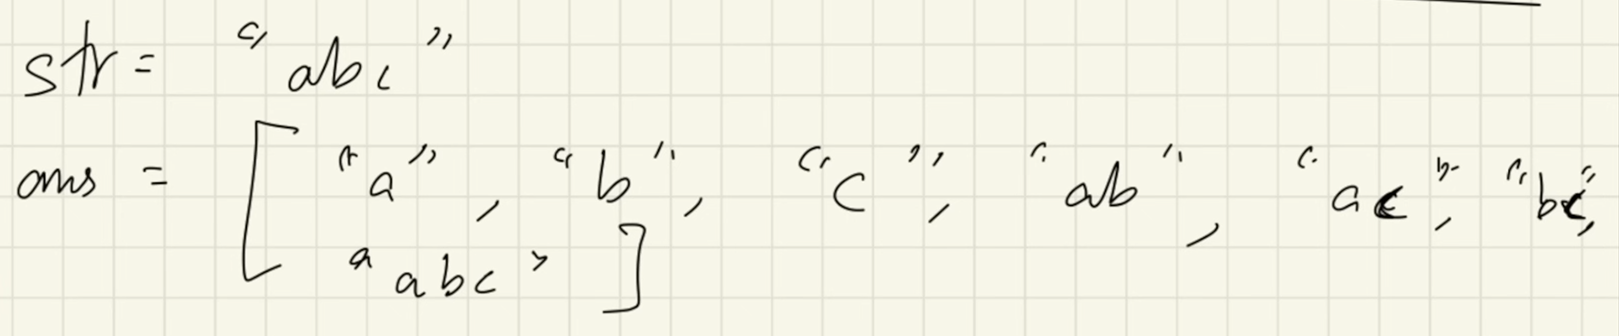 str = "abc"
ans = ["a", "b", "c", "ab", "ac", "bc",
"abc"]